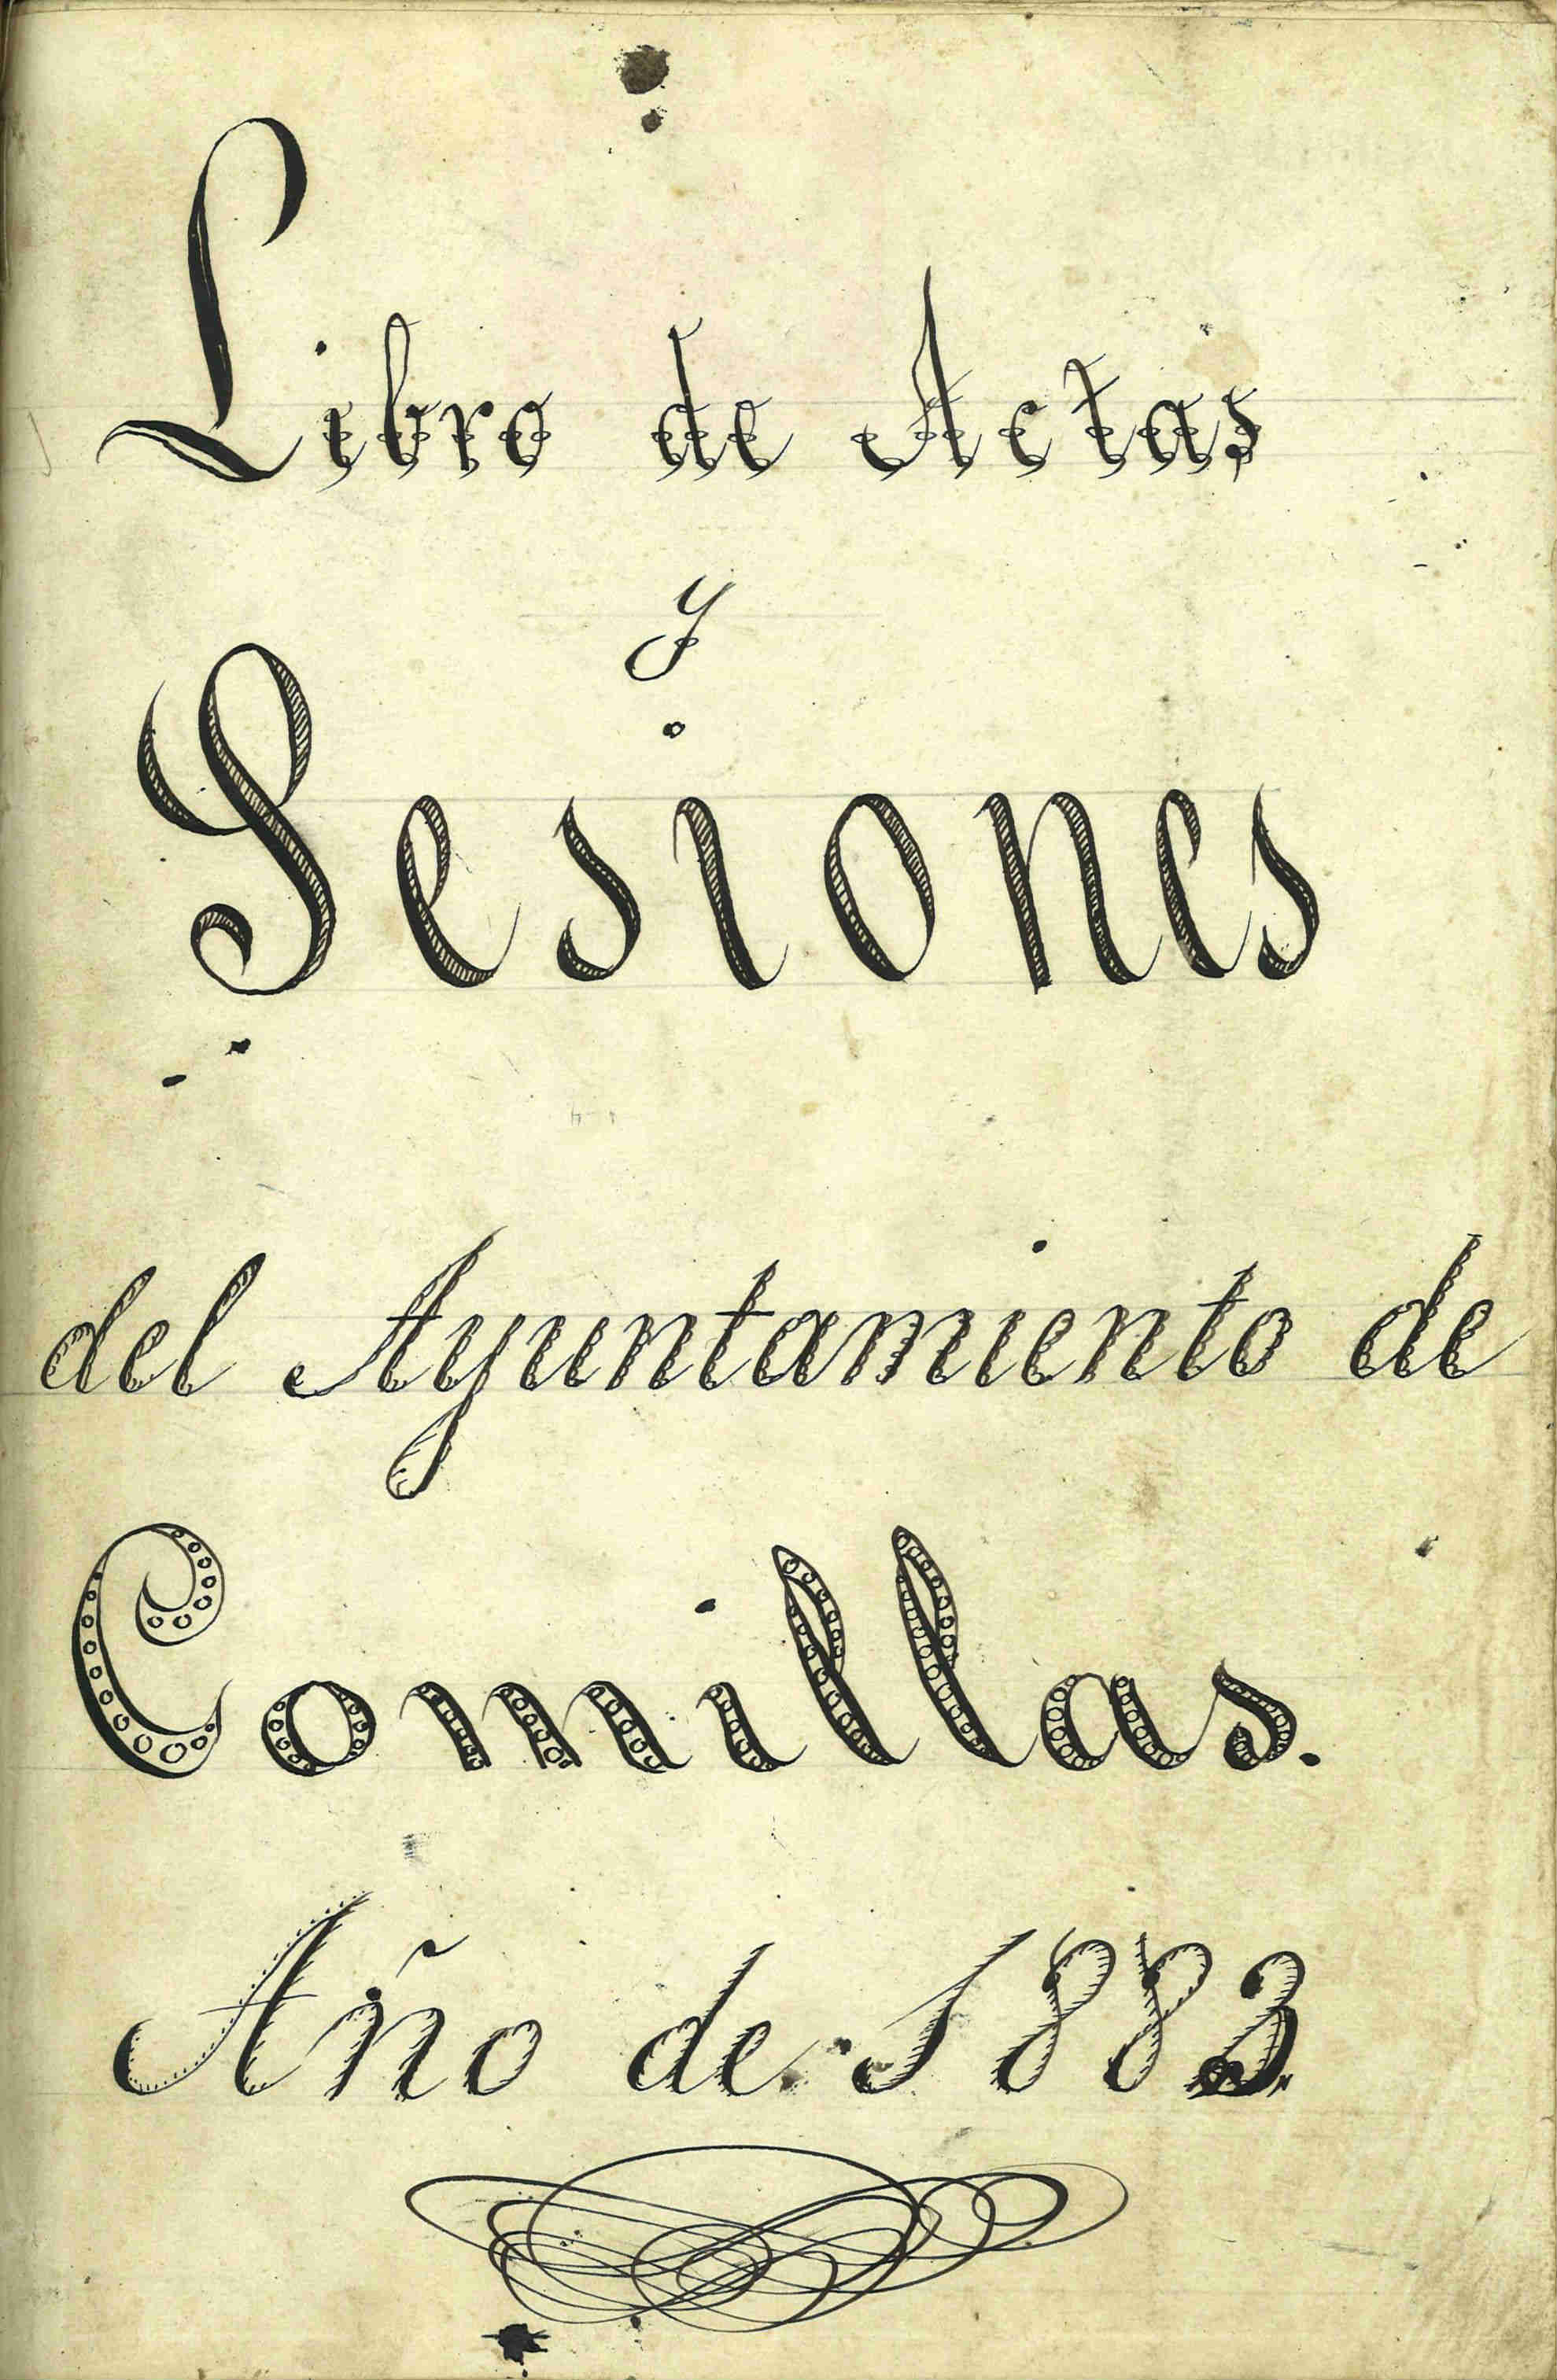 Libro de Actas
y
Sesiones
del Ayuntamiento de
Comillas.
Año de 1883